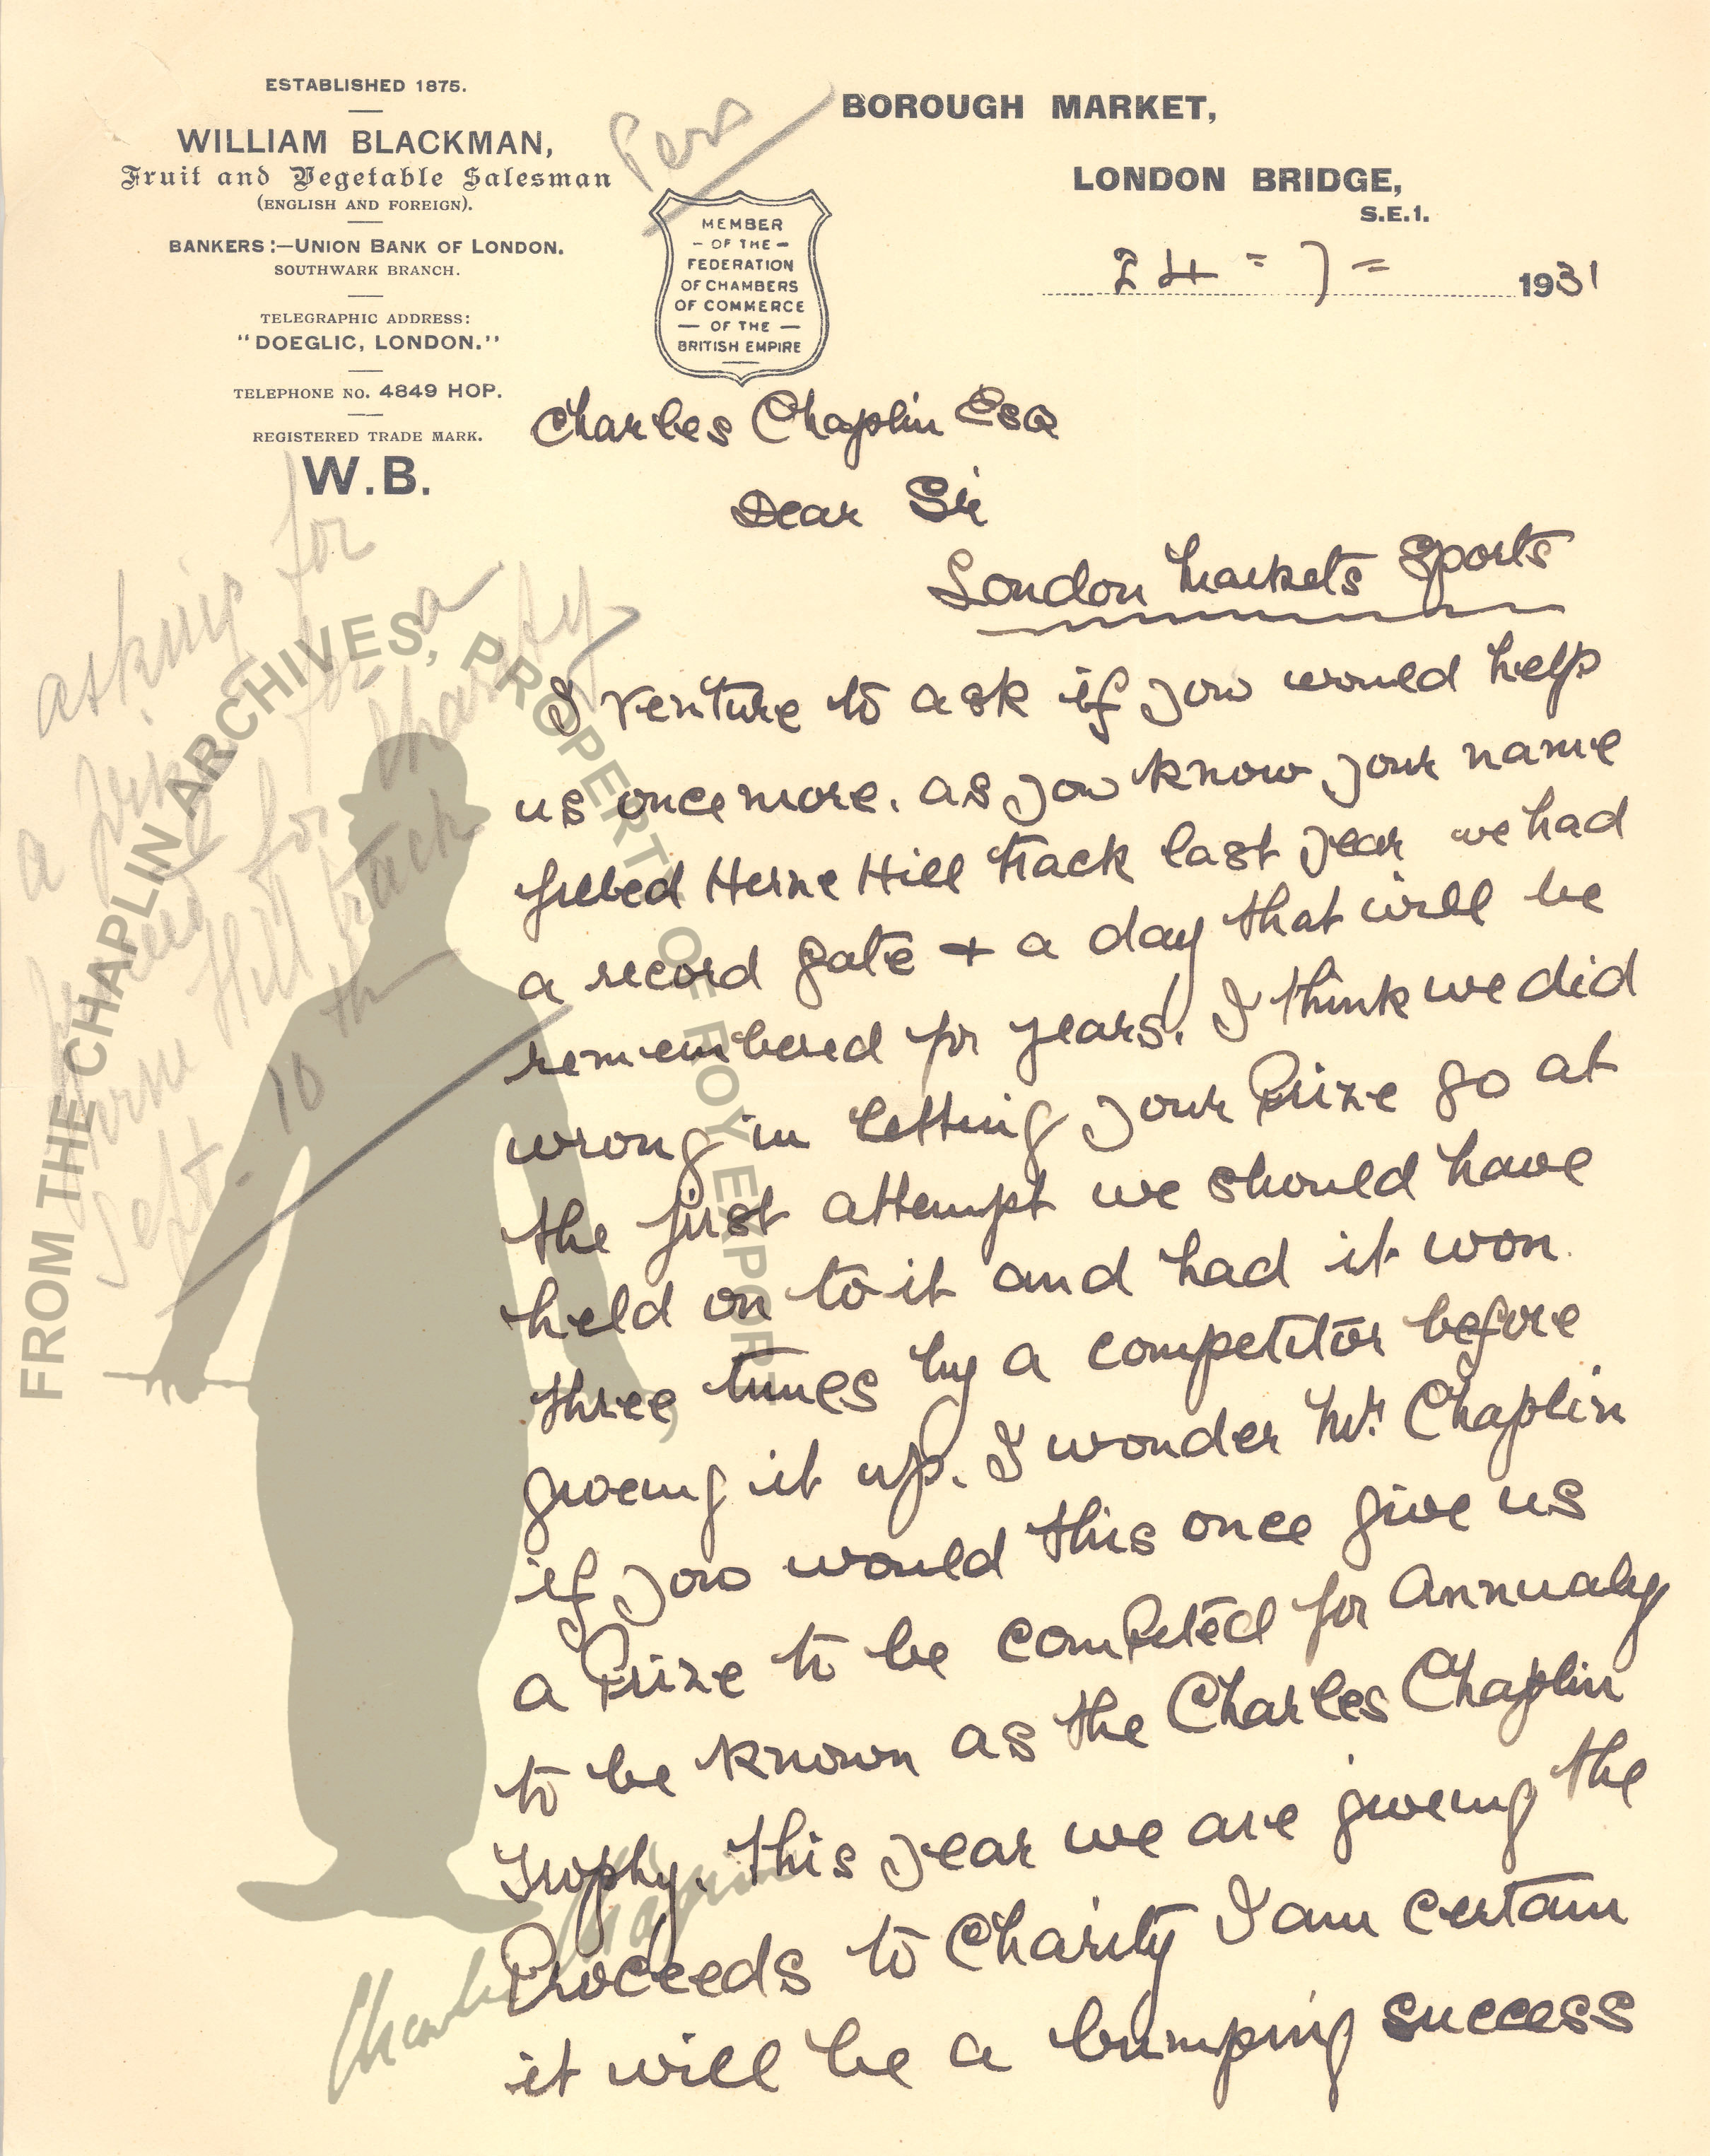 ESTABLISHED 1875.
WILLIAM BLACKMAN,
Fruit and Vegetable Salesman
(ENGLISH AND FOREIGN).
BANKERS:—UNION BANK OF LONDON.
SOUTHWARK BRANCH.
TELEGRAPHIC ADDRESS:
"DOEGLIC, LONDON."
TELEPHONE NO. 4849 HOP.
REGISTERED TRADE MARK.
W.B.
Pers
MEMBER
- OF THE -
FEDERATION
OF CHAMBERS
OF COMMERCE
— OF THE —
BRITISH EMPIRE
BOROUGH MARKET,
LONDON BRIDGE,
S.E.1.
24 = 7 = 1931
Charles Chaplin Esq
Dear Sir
London Markets Sports
I venture to ask if you would help
us once more. as you know your name
filled Herne Hill track last year we had
a record gate + a day that will be
remembered for years. I think we did
wrong in letting your Prize go at
the first attempt we should have
held on to it and had it won
three times by a competitor before
giveing it up. I wonder Mr. Chaplin
if you would this once give us
a Prize to be competed for Annualy
to be known as the Charles Chaplin
Trophy. This year we are giveing the
Proceeds to Charity I am certain
it will be a bumping success
asking for
a prize for a
for charity
Herne Hill track
Sept. 10 th
FROM THE CHAPLIN ARCHIVES, PROPERTY OF ROY EXPORT
Charlie Chaplin